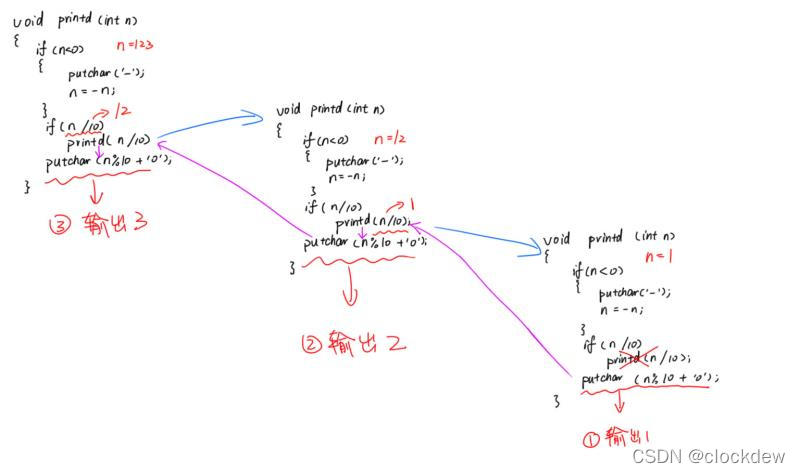 void printd (int n)
{
if (n<0) n=123
{
putchar('-');
n=-n;
}
if (n/10) 12
printd(n/10)
putchar (n%10+'0');
}
③ 输出3
void printd (int n)
{
if (n<0) n=12
{ putchar('-');
n=-n;
}
if (n/10) 1
printd(n/10);
putchar (n%10+'0');
}
② 输出2
void printd (int n)
{ n=1
if (n<0)
{
putchar('-');
n=-n;
}
if (n/10)
printd(n/10);
putchar (n%10+'0');
}
① 输出1
CSDN @clockdew